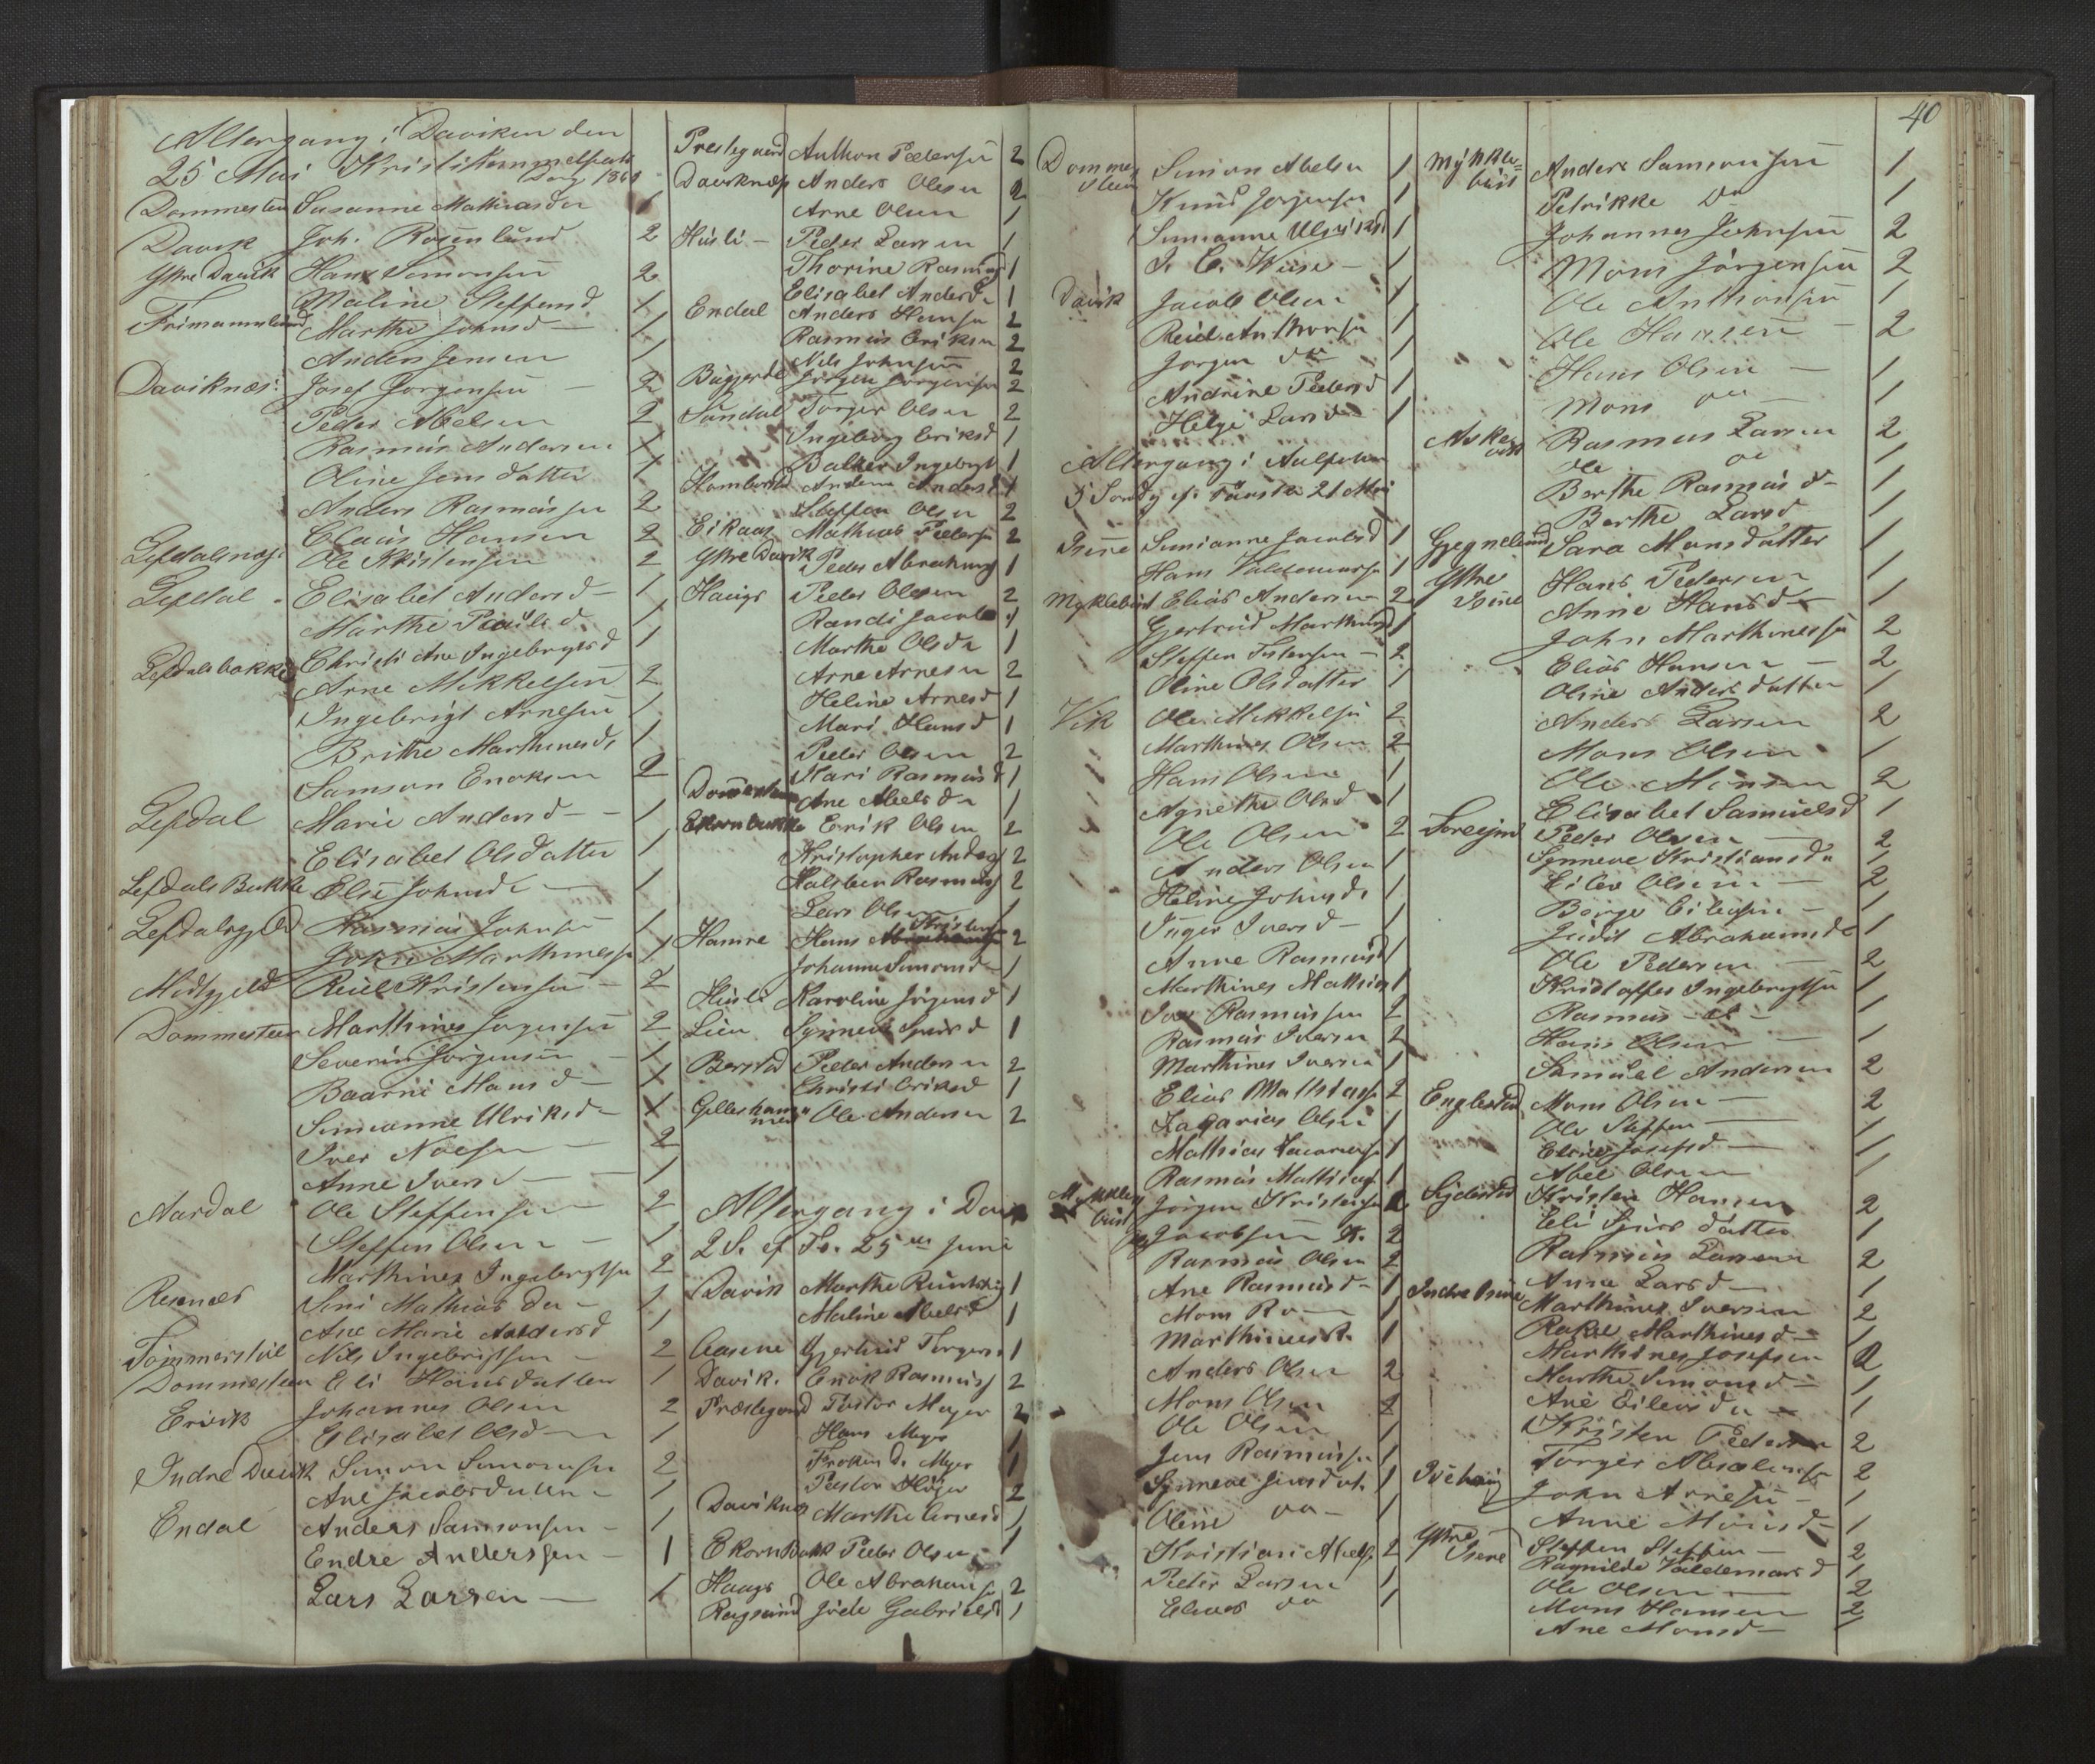 Altergang i Daviken den
25 Mai Kristi Himmelfarts
Dag 1868
Dommesten Susanne Mathiasdr 1
Davik Joh. Rosenlund 2
Ytre Davik Hans Simonsen 2
Maline Steffensd 1
Frimannslund Marthe Johnsd 1
Anders Jensen 1
Daviknæs Josef Jørgensen 2
Peder Abelsen 2
Rasmus Andersen 1
Oline Jensdatter 1
Anders Rasmussen 2
Claus Hansen 2
Lefdalsnæs Ole Kristensen 2
Lefdal Elisabet Andersd 1
Marthe Paulsd 1
Lefdalsbakke Christi Ane Ingebrigtsd 1
Arne Mikkelsen 2
Ingebrigt Arnesen 1
Brithe Marthinesd 1
Samson Enoksen 2
Lefdal Marie Andersd 1
Elisabet Olsdatter 1
Lefdals Bakke Else Johnsd 1
Lefdalsgjeld Rasmus Johnsen 1
John Marthinessen 1
Midtgjeld Reiel Kristensen 2
Dommesten Marthines Jørgensen 2
Severin Jørgensen 1
Baarni Monsd 1
Simianne Ulriksd 1
Iver Noesen 2
Anne Iversd 1
Aardal Ole Steffensen 2
Steffen Olsen 1
Marthines Ingebrigtsen 2
Rennes Sini Mathiasdr 1
Ane Marie Andersd 1
Tømmerstøl Nils Ingebrigtsen 2
Dommesten Eli Hansdatter 1
Ervik Johannes Olsen 2
Elisabet Olsd 1
Indre Davik Simon Simonsen 2
Ane Jacobsdatter 1
Endal Anders Samsonsen 1
Endre Anderssen 1
Lars Larsen 1
Prestegaard Anthon Pedersen 2
Daviknæs Anders Olsen 2
Arne Olsen 1
Husli Peder Larsen 1
Thorine Rasmusd 1
Elisabet Andersd 1
Endal Anders Hansen 2
Rasmus Eriksen 2
Nils Johnsen 2
Jørgen Jørgensen 2
Sundal Torger Olsen 2
Ingeborg Eriksd 1
Balzer Ingebrigt 1
Andersd 1
Steffen Olsen 2
Eikaas Mathias Pedersen 2
Ytre Davik Peder Abrahams 1
Haugs Peder Olsen 2
Randi Jacobsd 1
Marthe Olsd 1
Arne Arnesen 2
Heline Arnesd 1
Mari Hansd 1
Peder Olsen 2
Kari Rasmusd 1
Dommesten Ane Abelsd 1
Ekornbakke Erik Olsen 2
Kristopher Anders 2
Halsten Rasmus 2
Lars Olsen 1
Hamre Hans Kristens 2
Johanne Simonsd 1
Husli Karoline Jørgensd 1
Lien Synneve Sjursd 1
Berstad Peder Andersen 2
Christi Eriksd 1
Ole Andersen 2
Altergang i Davik
2 S. ef Tr. 25de Juni
Davik Marthe 1
Maline Abelsd 1
Aasene Gjertrud Torgers 1
Davik Enok Rasmus 2
Præstegaard Pastor Meyer 2
Hans Meyer 1
Frøken D. Meyer 1
Pastor Høyer 2
Daviknes Marthe Arnesd 1
EkornBakk Peder Olsen 1
Haugs Ole Abrahams 2
Rugsund Jøde Gabrielsd 1
40
Dommesten Simon Abelsen 1
Knud Jørgensen 1
Simianne Ulriksd 1
J. C. Wiese 1
Davik Jacob Olsen 1
Reiel Anthonsen 1
Jørgen do 1
Andrine Pedersd 1
Helge Larsd 1
Altergang i Aalfoten
S Søndg ef: Paaske 21 Mai
Isene Simianne Jacobsd 1
Hans Valdemarsen 1
Myklebust Elias Andersen 2
Gjertrud Marthinsd 1
Steffen 2
Oline Olsdatter 1
Vik Ole Mikkelsen 2
Marthines Olsen 2
Hans Olsen 1
Agnethe Olsd 1
Ole Olsen 2
Anders Olsen 1
Heline Johnsd 1
Inger Iversd 1
Anne Rasmusd 1
Marthines Mathias 1
Iver Rasmussen 2
Rasmus Iversen 2
Marthines Iversen 1
Elias Mathias 2
Zacarias Olsen 1
Mathias Zacarias 1
Rasmus Mathias 1
Myklebust Jørgen Kristensen 2
Jacobsen 2
Rasmus Olsen 2
Ane Rasmusd 1
Mons Ro 1
Marthines 1
Anders Olsen 2
Mons Olsen 2
Ole Olsen 1
Jens Rasmussen 1
Synneve Jensdat. 1
Oline do 1
Kristian Abels 2
Peder Larsen 1
Elias do 1
Myklebust Anders Samsonsen 1
Petrikke Do 1
Johannes Johnsen 2
Mons Jørgensen 2
Ole Anthonsen 1
Ole Hansen 2
Hans Olsen 1
Mons do 1
Rasmus Larsen 2
Ole do 1
Berthe Rasmusd 1
Berthe Larsd 1
Gjegnelund Sara Monsdatter 1
Ytre Isene Hans Pedersen 1
Anne Hansd 1
John Marthinessen 2
Elias Hansen 2
Oline Andersdatter 1
Anders Larsen 2
Mons Olsen 1
Ole Monsen 2
Elisabet Samuelsd 1
Peder Olsen 2
Synneve Kristiansd 1
Eiler Olsen 2
Børge Eilersen 1
Judit Abrahamsd 1
Ole Pedersen 2
Kristoffer Ingebrigtsen 1
Rasmus do 1
Hans Olsen 1
Samuel Andersen 2
Englestad Mons Olsen 2
Ole Steffen 1
Eline Josefsd 1
Abel Olsen 1
Sigdestad Kristen Hansen 2
Eli Sjursdatter 1
Rasmus Larsen 2
Anne Larsd 1
Indre Isene Marthines Iversen 2
Rakel Marthinesd 1
Marthines Josefsen 2
Marthe Simonsd 1
Ane Eilersdr 1
Kristen Pedersen 2
Torger Absalons 2
John Arnesen 1
Anne Monsd 1
Ytre Isene Steffen Steffen 2
Ragnilde Valdemarsd 1
Ole Olsen 2
Mons Hansen 2
Ane Monsd 1